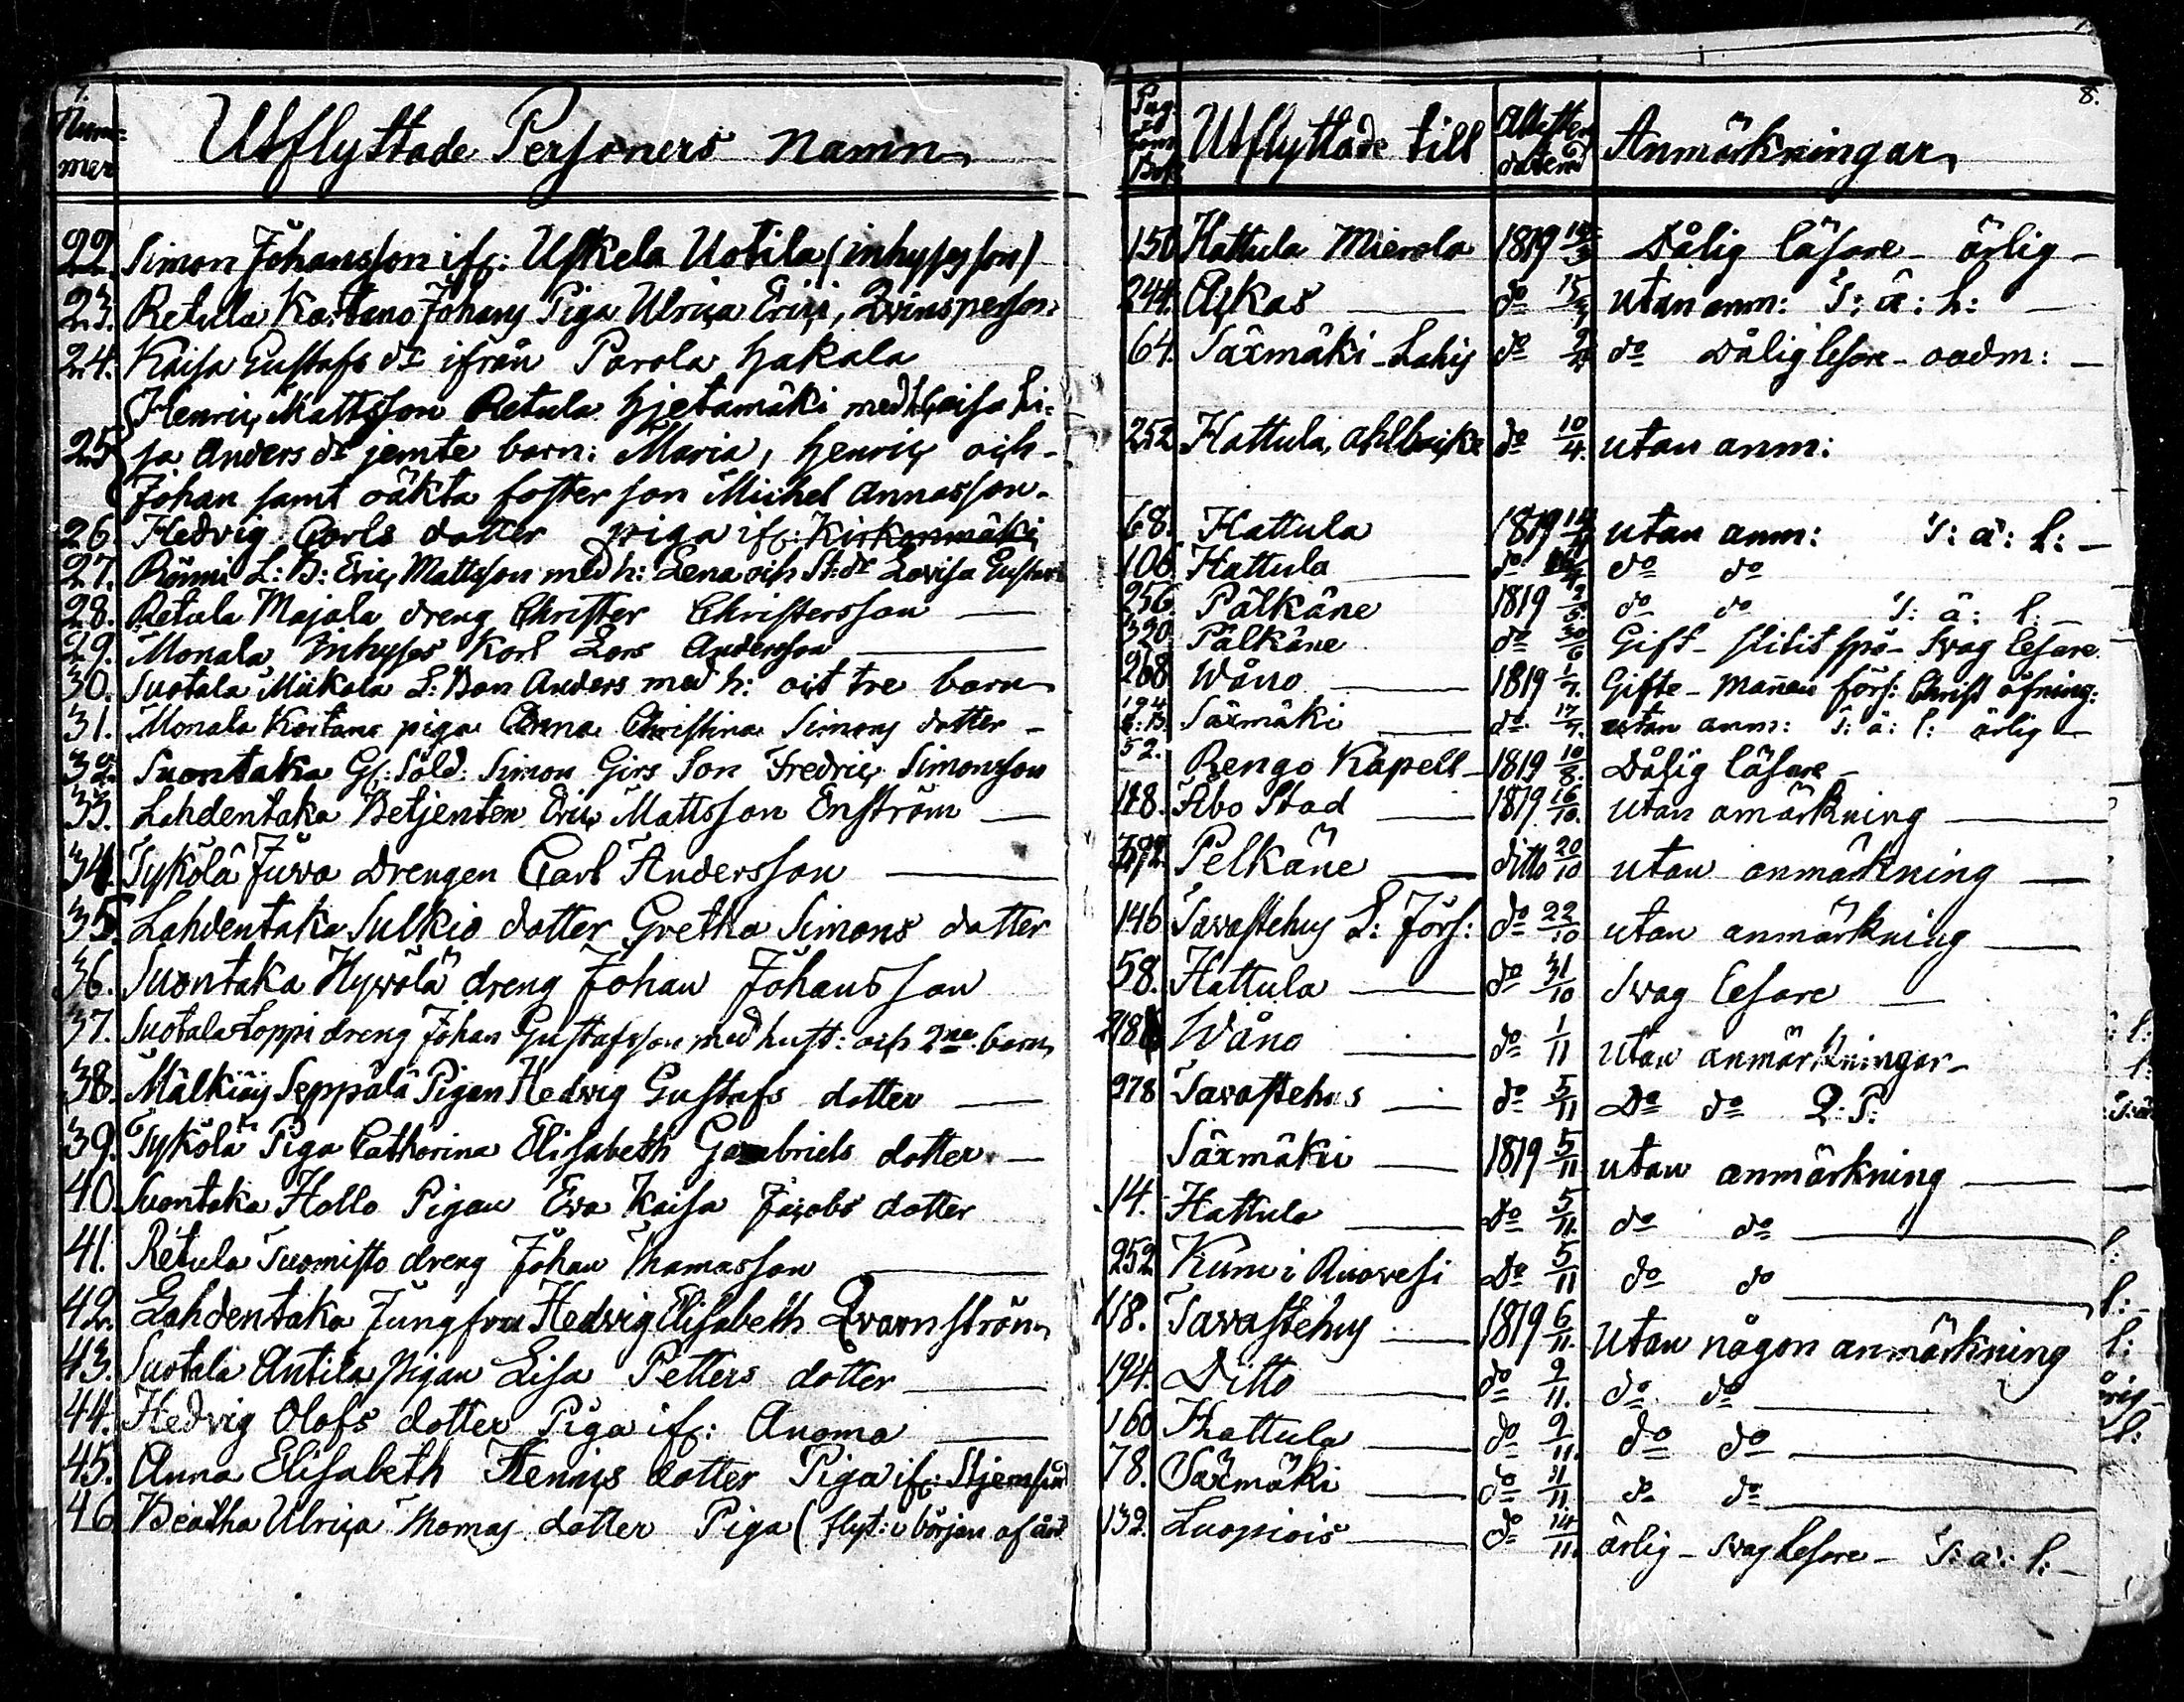 7.
8.
Num=
mer
Utflyttade Personers namn
Pag.
Bok
Utflyttade till
datend
Anmärkningar
22. Simon Johansson if: Uskela Uotila (inhyses son) 150 Hattula Mierola 1819 Dålig läsare - ärlig -
23. Retula Kartano Johans Piga Ulrica Erici, Qvinsperson: 244. Askas do 15 utan anm: S: ä: l: -
24. Kaisa Gustafs dr ifrån Parola Hakala 64. Säxmäki - Lahis do do Dålig lesare - oadm: -
Henric Mattsson Retula Hjetamäki med h. Caisa Li=
25 sa Anders dr jemte barn: Maria, Henric och - 252 Hattula, do 10/4. utan anm:
Johan samt oäkta foster son Michel Annasson.
26. Hedvig Carls dotter piga if: Kirkonmäki 68. Hattula 1819 utan anm: S: ä: l: -
27. Rönni L: B: Eric Mattsson med h: Lena och St: dr Lovisa Gustavs 106 Hattula do do do
28. Retula Majala dreng Christer Christersson 256. Pälkäne 1819 2/5. do do S: ä: l: -
29. Monala Inhyses Karl Lars Andersson 320 Pälkäne do 30/6 Gift - Svag lesare
30. Suotala Miikola L: Bon Anders med h: oct tre barn 268 Wåno 1819 1/7. Gifte - Mañen förs: Christ öfning:
31. Monala Kartano piga Anna Christina Simons dotter - 194 Säxmäki do 17/7. utan anm: S: ä: l: ärlig -
32. Suontaka Gf: Sold: Simon Girs Son Fredric Simonsson 52. Rengo Kapell 1819 10/8. Dålig läsare -
33. Lahdentaka Betjenten Eric Mattsson Enström 118. Åbo Stad 1819 16/10. utan amärkning
34. Tykölä Juva Drengen Carl Andersson Pelkäne ditto 20/10 utan anmärkning
35. Lahdentaka Sulkio dotter Gretha Simons dotter 146 Tavastehus L: Förs: do 22/10 utan anmärkning
36. Suontaka Hyvölä dreng Johan Johansson 58. Hattula do 31/10 Svag lesare
37. Suotala Loppi dreng Johan Gustafsson med hust: och 2ne barn Wåno do 1/11 Utan anmärkningar -
38. Mälkiäis Seppälä Pigan Hedvig Gustafs dotter 278 Tavastehus do 5/11 Do do Q: P:
39. Tykölä Piga Catharina Elisabeth Gabriels dotter - Säxmäki 1819 5/11 utan anmärkning
40. Suontaka Hollo Pigan Eva Kaisa Jacobs dotter 14. Hattula do 5/11. do do
41. Retula Suomisto dreng Johan Thomasson 252. Kumi i Ruovesi Do 5/11 do do
42. Lahdentaka Jungfru Hedvig Elisabeth Qvarnström 118. Tavastehus 1819 6/11. Utan någon anmärkning
43. Suotala Antila pigan Lisa Petters dotter 194. Ditto do 9/11. do do
44. Hedvig Olofs dotter Piga if: Anoma 160 Hattula do 9/11. do do
45. Anna Elisabeth Henrics dotter Piga if: 78. Säxmäki do 11/11. do do
46 Beatha Ulrica Thomas dotter Piga (flyt: i början af året 132. Luopiois do 14/11. ärlig - svag lesare - S: ä: l: -